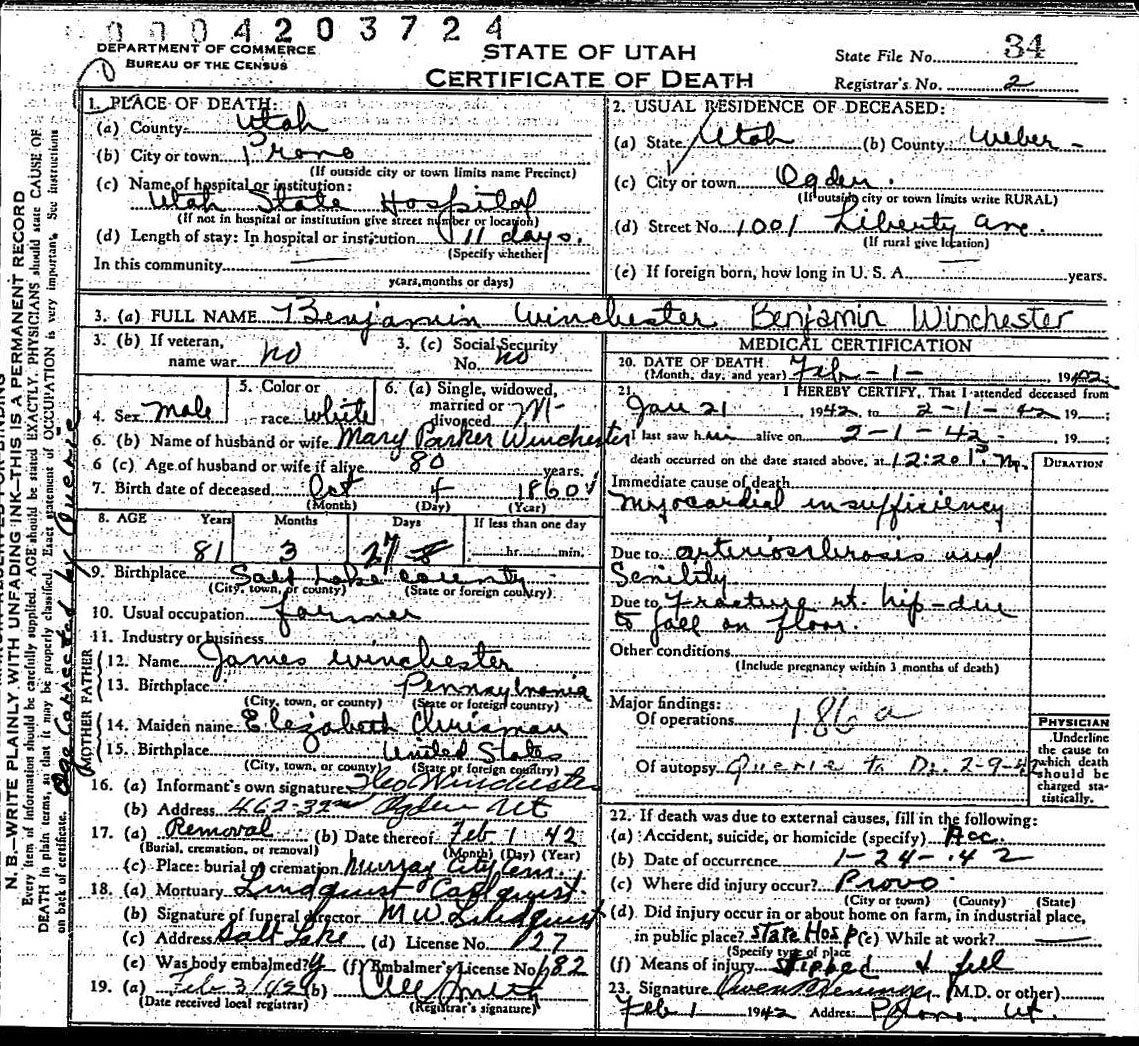 0004203724
DEPARTMENT OF COMMERCE
BUREAU OF THE CENSUS
STATE OF UTAH
CERTIFICATE OF DEATH
State File No. 34
Registrar's No. 2
1. PLACE OF DEATH:
(a) County Utah
(b) City or town Provo
(If outside city or town limits name Precinct)
(c) Name of hospital or institution:
Utah State Hospital
(If not in hospital or institution give street number or location)
(d) Length of stay: In hospital or institution 11 days.
(Specify whether
In this community
years, months or days)
2. USUAL RESIDENCE OF DECEASED:
(a) State Utah (b) County Weber
(c) City or town Ogden.
(If outside city or town limits write RURAL)
(d) Street No. 1001 Liberty Ave.
(If rural give location)
(e) If foreign born, how long in U. S. A. years.
3. (a) FULL NAME Benjamin Winchester Benjamin Winchester
3. (b) If veteran, name war no
3. (c) Social Security No. no
4. Sex male
5. Color or race white
6. (a) Single, widowed, married or divorced M-
6. (b) Name of husband or wife Mary Parker Winchester
6 (c) Age of husband or wife if alive 80 years.
7. Birth date of deceased Oct 4 1860
(Month) (Day) (Year)
8. AGE Years Months Days If less than one day
81 3 27 hr. min.
9. Birthplace Salt Lake County
(City, town, or county) (State or foreign country)
10. Usual occupation farmer
11. Industry or business
FATHER
12. Name James Winchester
13. Birthplace Pennsylvania
(City, town, or county) (State or foreign country)
MOTHER
14. Maiden name Elizabeth Chrisman
15. Birthplace United States
(City, town, or county) (State or foreign country)
16. (a) Informant's own signature Winchester
(b) Address 462-32nd Ogden Ut
17. (a) Removal (b) Date thereof Feb 1 42
(Burial, cremation, or removal) (Month) (Day) (Year)
(c) Place: burial or cremation Murray City Cem.
18. (a) Mortuary Lindquist
(b) Signature of funeral director M W Lindquist
(c) Address Salt Lake (d) License No. 127
(e) Was body embalmed? y (f) Embalmer's License No. 682
19. (a) Feb (b) Smith
(Date received local registrar) (Registrar's signature)
MEDICAL CERTIFICATION
20. DATE OF DEATH Feb - 1 - 1942
(Month, day, and year)
21. I HEREBY CERTIFY, That I attended deceased from
Jan 21 1942 to 2-1-42 19 ;
I last saw him alive on 2-1-42 19 ;
death occurred on the date stated above, at 12:20 P. M.
DURATION
Immediate cause of death
myocardial insufficiency
Due to arteriosclerosis and
Senility
Due to Fracture rt. hip - due
to fall on floor.
Other conditions
(Include pregnancy within 3 months of death)
Major findings:
Of operations 186a
Of autopsy Querie to Dr. 2-9-42
PHYSICIAN
Underline the cause to which death should be charged statistically.
22. If death was due to external causes, fill in the following:
(a) Accident, suicide, or homicide (specify) Acc.
(b) Date of occurrence 1-24-42
(c) Where did injury occur? Provo
(City or town) (County) (State)
(d) Did injury occur in or about home on farm, in industrial place,
in public place? State Hosp (e) While at work?
(Specify type of place
(f) Means of injury Slipped & fell
23. Signature Owen (M.D. or other)
Feb 1 1942 Address Provo. Ut.
N. B.—WRITE PLAINLY WITH UNFADING INK—THIS IS A PERMANENT RECORD
Every item of information should be carefully supplied. AGE should be stated EXACTLY. PHYSICIANS should state CAUSE OF
DEATH in plain terms, so that it may be properly classified. Exact statement of OCCUPATION is very important. See instructions
on back of certificate.
Age Corrected by Querie